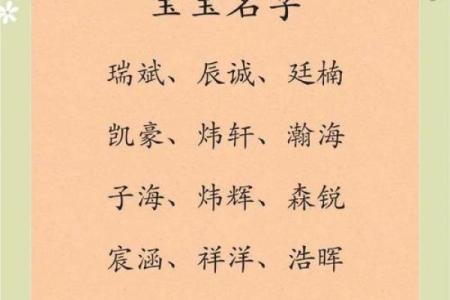 宝宝名字
瑞斌、辰诚、廷楠
凯豪、炜轩、瀚海
子海、炜辉、森锐
宸涵、祥洋、浩晖